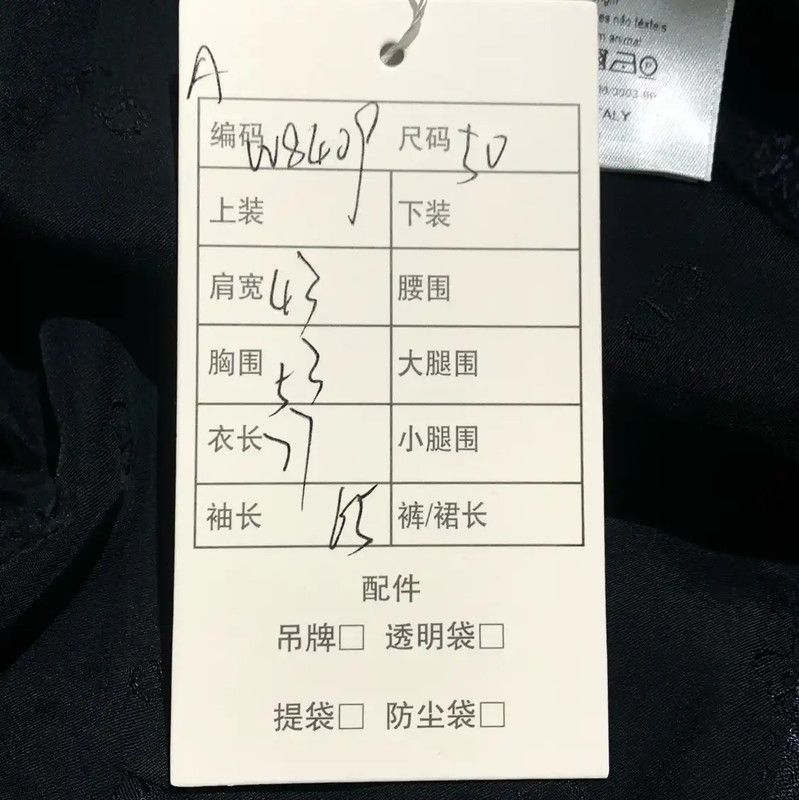 es não têxteis
m animal
ITALY
A
编码 W8409 尺码 50
上装 下装
肩宽 43 腰围
胸围 53 大腿围
衣长 77 小腿围
袖长 65 裤/裙长
配件
吊牌□ 透明袋□
提袋□ 防尘袋□